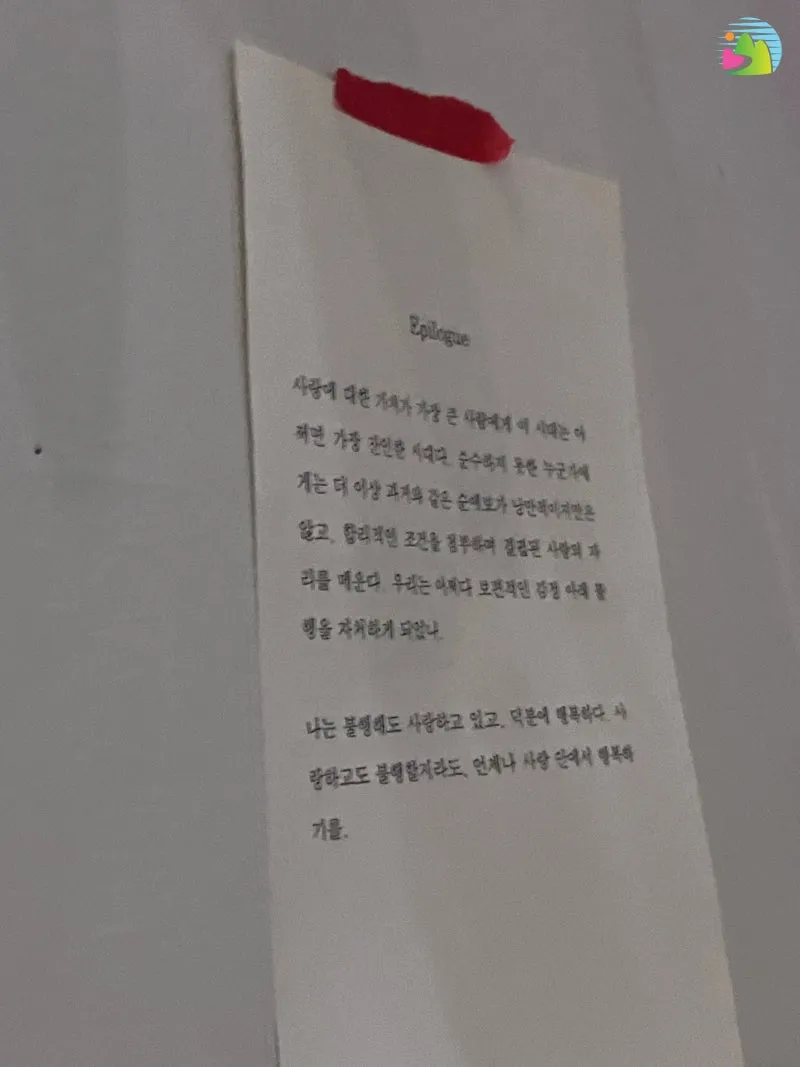 Epilogue
사랑에 대한 가치가 가장 큰 사람에게 이 시대는 어
쩌면 가장 잔인한 시대다. 순수하지 못한 누군가에
게는 더 이상 과거와 같은 순애보가 낭만적이지만은
않고, 합리적인 조건을 첨부하며 결렬된 사랑의 자
리를 메운다. 우리는 어쩌다 보편적인 감정 아래 불
행을 자처하게 되었나.
나는 불행해도 사랑하고 있고, 덕분에 행복하다. 사
랑하고도 불행할지라도, 언제나 사랑 안에서 행복하
기를.